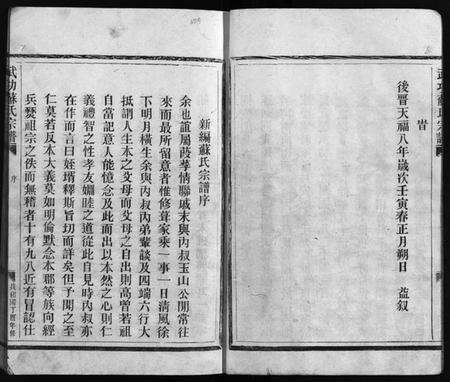 旹
後晉天福八年歲次壬寅春正月朔日　益叙
武功蘇氏宗譜
新編蘇氏宗譜序
余也誼屬葭莩情聯戚末與丙叔玉山公閒常往
來而最所留意者惟修葺家乘一事一日清風徐
下明月橫生余與丙叔丙弟輩談及四端六行大
抵謂人生本之父母而父母之自出則高曾若祖
自當記意人能憶念及此而出以本然之心則仁
義禮智之性孝友婣睦之道從此自見時丙叔亦
在作而言曰姪壻釋斯旨切而詳矣但予聞之至
仁莫若反本大義莫如明倫默念本耶等族向經
兵燹祖宗之佚而無稽者十有九八近有冒認仕
武功蘇氏宗譜
序